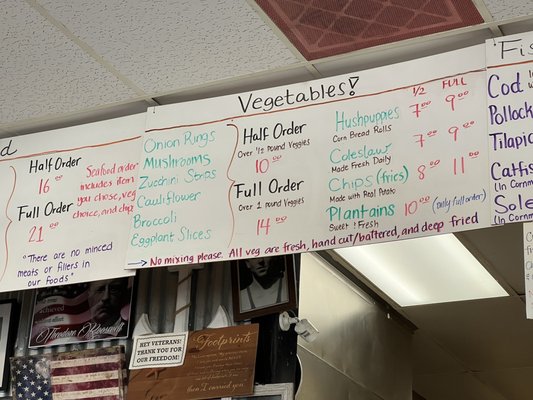 Half Order
16.00
Full Order
21.00
Seafood order
includes item
you chose, veg
choice, and chip
"There are no minced
meats or fillers in
our foods"
Vegetables!
Onion Rings
Mushrooms
Zucchini Strips
Cauliflower
Broccoli
Eggplant Slices
Half Order
Over 1/2 pound Veggies
10.00
Full Order
Over 1 pound Veggies
14.00
1/2 FULL
Hushpuppies 7.00 9.00
Corn Bread Rolls
Coleslaw 7.00 9.00
Made Fresh Daily
Chips (fries) 8.00 11.00
Made with Real Potato
Plantains 10.00 (only full order)
Sweet & Fresh
→ No mixing please. All veg are fresh, hand cut/battered, and deep fried
Fis
Cod
Pollock
Tilapia
Catfis
(in Cornm
Sole
(in Corn
Theodore Roosevelt
HEY VETERANS
THANK YOU FOR
OUR FREEDOM!
Footprints
then I carried